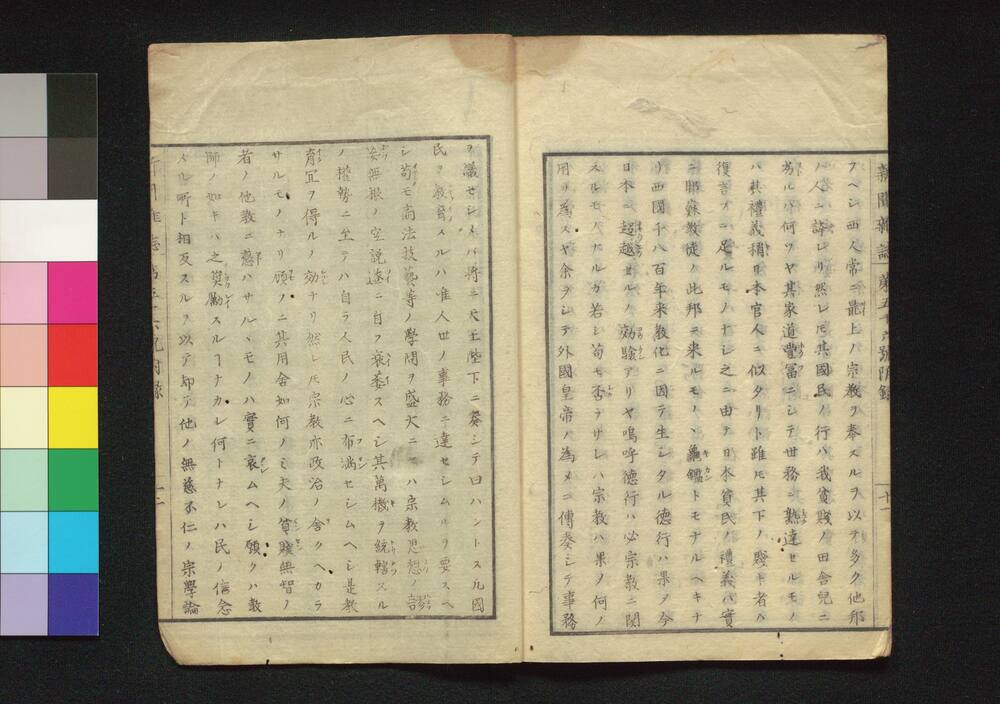 新聞雜誌 第五十六號附録 十一
スヘシ西人常ニ最上ノ宗教ヲ奉スルヲ以テ多ク他邦
ノ人ニ誇レリ然レ𪜈其國民ノ行ハ我貧賤ノ田舎兒ニ
劣ルハ何ソヤ其家道豐冨ニシテ世務ニ熟達セルモノ
ハ其禮義稍日本官人ニ似タリト雖𪜈其下ノ賤キ者ハ
復言フニ足ルモノナシ之ニ由テ日本貧民ノ禮義ハ實
ニ耶蘇教徒ノ此邦ニ来ルモノヽ龜鑑トモナルヘキナ
リ西國千八百年来教化ニ因テ生シタル德行ハ果ヲ今
日本ニ超越セルノ効驗アリヤ嗚呼德行ハ必宗教ニ関
スルモノナルカ若シ苟モ否ラサレハ宗教ハ果ノ何ノ
用ヲ為スヤ余ヲシテ外國皇帝ノ為メニ傳奏シテ事務
ヲ議セシメハ将ニ天王陛下ニ奏シテ曰ハントス凡國
民ヲ教育スルハ唯人世ノ事務ニ達セシムルヲ要スヘ
シ苟モ高法技藝等ノ學問ヲ盛大ニセハ宗教思想ノ
無根ノ空説遂ニ自ラ衰萎スヘシ其萬機ヲ統轄スル
ノ權勢ニ至テハ自ラ人民ノ心ニ布満セシムヘシ是教
育冝ヲ得ルノ効ナリ然レ𪜈宗教亦政治ノ舎クヘカラ
サルモノナリ頋フニ其用舎如何ノミ夫ノ貧賤無智ノ
者ノ他教ニ惑ハサルヽモノハ實ニ哀ムヘシ願クハ教
師ノ如キハ之奨勵スルヿナカレ何トナレハ民ノ信念
スル所ト相反スルヲ以テ却テ他ノ無慈不仁ノ宗學論
新聞雜誌 第五十六號附録 十二